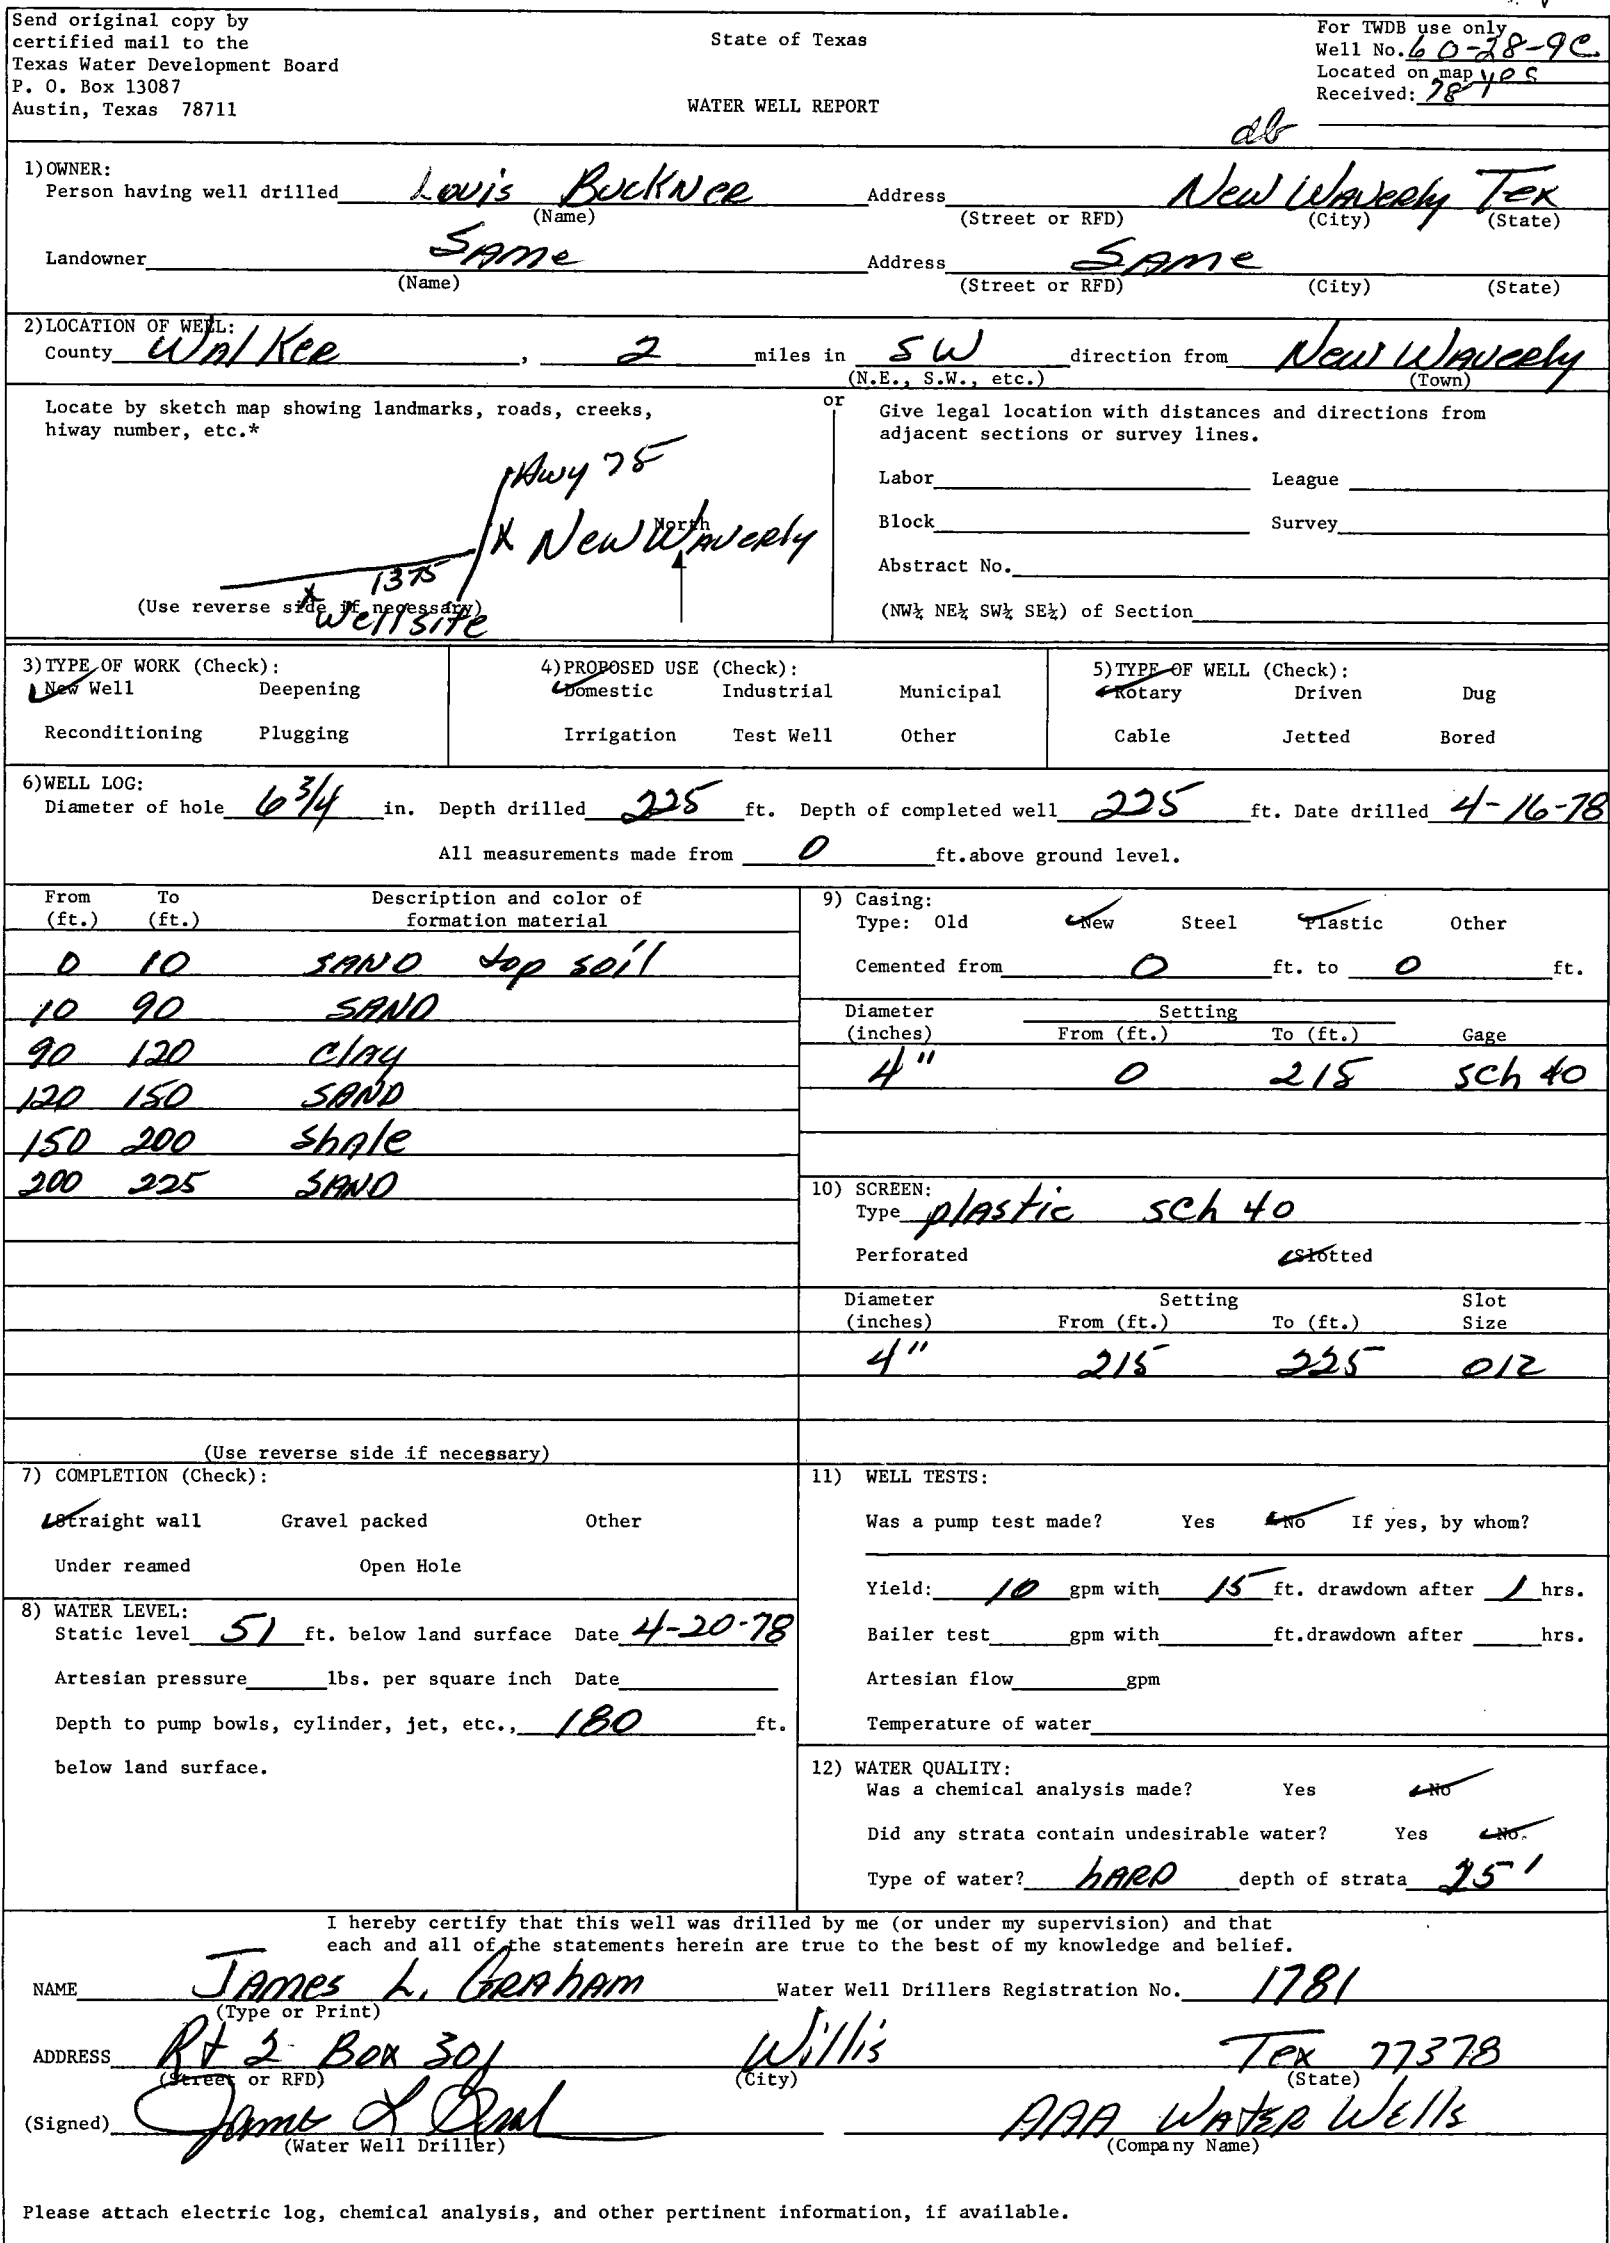 Send original copy by
certified mail to the
Texas Water Development Board
P. O. Box 13087
Austin, Texas 78711
State of Texas
WATER WELL REPORT
For TWDB use only
Well No. 60-28-9C
Located on map yes
Received: 78
db
1) OWNER:
Person having well drilled Louis Buckner Address New Waverly Tex
(Name) (Street or RFD) (City) (State)
Landowner Same Address Same
(Name) (Street or RFD) (City) (State)
2) LOCATION OF WELL:
County Walker, 2 miles in SW direction from New Waverly
(N.E., S.W., etc.) (Town)
Locate by sketch map showing landmarks, roads, creeks,
hiway number, etc.*
Hwy 75
North
X New Waverly
1375
(Use reverse side if necessary)
X Wellsite
or
Give legal location with distances and directions from
adjacent sections or survey lines.
Labor League
Block Survey
Abstract No.
(NW¼ NE¼ SW¼ SE¼) of Section
3) TYPE OF WORK (Check):
✓ New Well Deepening
Reconditioning Plugging
4) PROPOSED USE (Check):
✓ Domestic Industrial Municipal
Irrigation Test Well Other
5) TYPE OF WELL (Check):
✓ Rotary Driven Dug
Cable Jetted Bored
6) WELL LOG:
Diameter of hole 6 3/4 in. Depth drilled 225 ft. Depth of completed well 225 ft. Date drilled 4-16-78
All measurements made from 0 ft.above ground level.
From To Description and color of
(ft.) (ft.) formation material
0 10 SAND top soil
10 90 SAND
90 120 Clay
120 150 SAND
150 200 Shale
200 225 SAND
(Use reverse side if necessary)
9) Casing:
Type: Old ✓ New Steel ✓ Plastic Other
Cemented from 0 ft. to 0 ft.
Diameter Setting
(inches) From (ft.) To (ft.) Gage
4" 0 215 sch 40
10) SCREEN:
Type plastic sch 40
Perforated ✓ Slotted
Diameter Setting Slot
(inches) From (ft.) To (ft.) Size
4" 215 225 012
7) COMPLETION (Check):
✓ Straight wall Gravel packed Other
Under reamed Open Hole
8) WATER LEVEL:
Static level 51 ft. below land surface Date 4-20-78
Artesian pressure lbs. per square inch Date
Depth to pump bowls, cylinder, jet, etc., 180 ft.
below land surface.
11) WELL TESTS:
Was a pump test made? Yes ✓ No If yes, by whom?
Yield: 10 gpm with 15 ft. drawdown after 1 hrs.
Bailer test gpm with ft.drawdown after hrs.
Artesian flow gpm
Temperature of water
12) WATER QUALITY:
Was a chemical analysis made? Yes ✓ No
Did any strata contain undesirable water? Yes ✓ No.
Type of water? hARD depth of strata 25'
I hereby certify that this well was drilled by me (or under my supervision) and that
each and all of the statements herein are true to the best of my knowledge and belief.
NAME James L. Graham Water Well Drillers Registration No. 1781
(Type or Print)
ADDRESS Rt 2 Box 301 Willis Tex 77378
(Street or RFD) (City) (State)
(Signed) AAA Water Wells
(Water Well Driller) (Company Name)
Please attach electric log, chemical analysis, and other pertinent information, if available.